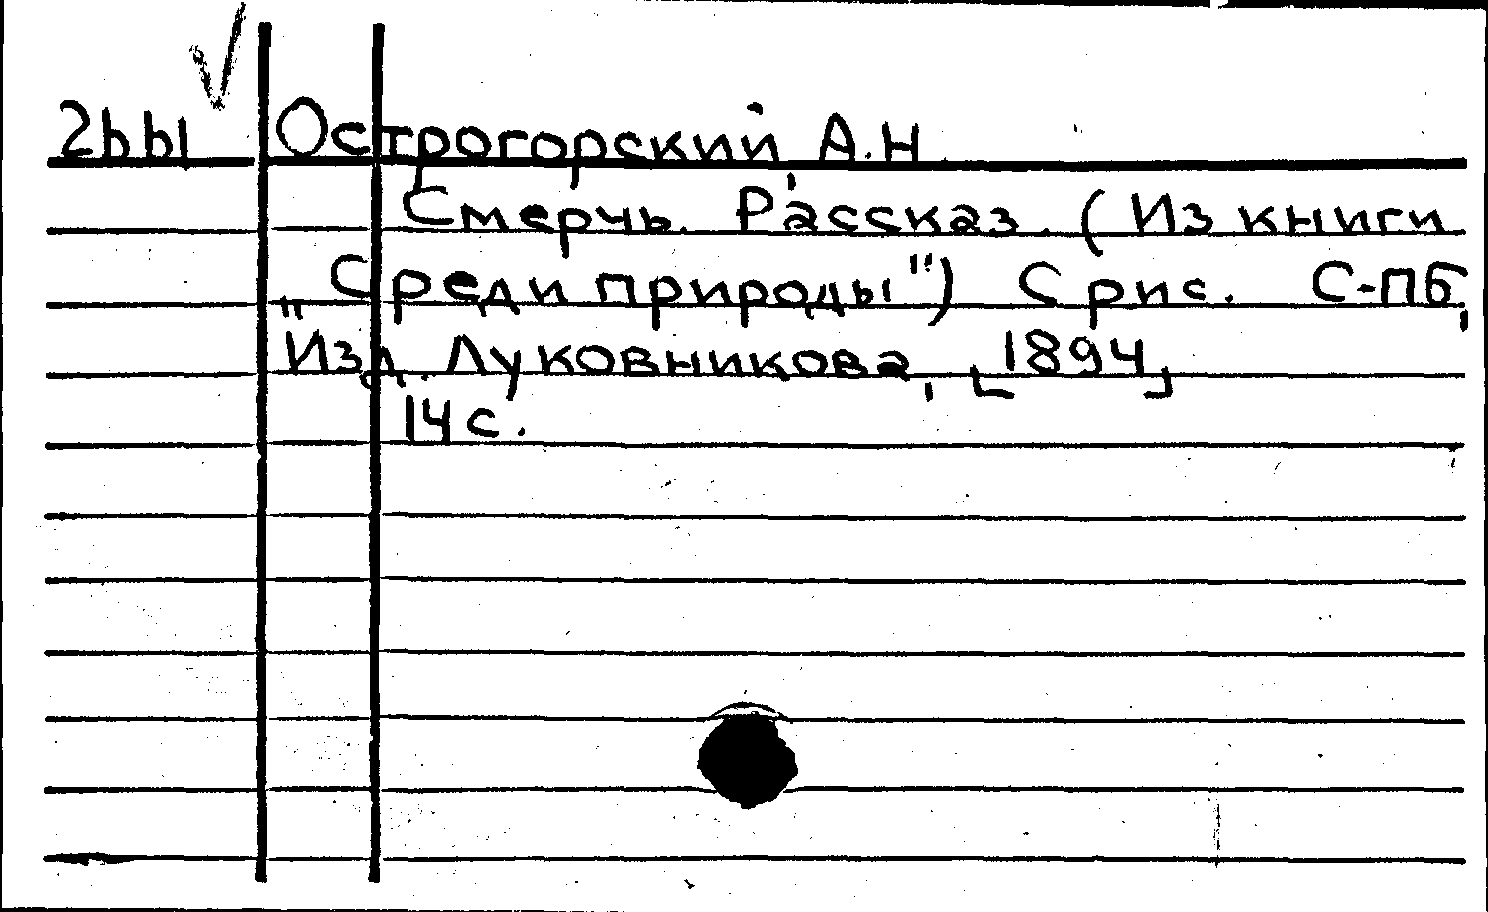 2bb1 Острогорский А.Н
Смерчь. Рассказ. (Из книги
„Среди природы") С рис. С-ПБ,
Изд. Луковникова, [1894]
14 с.